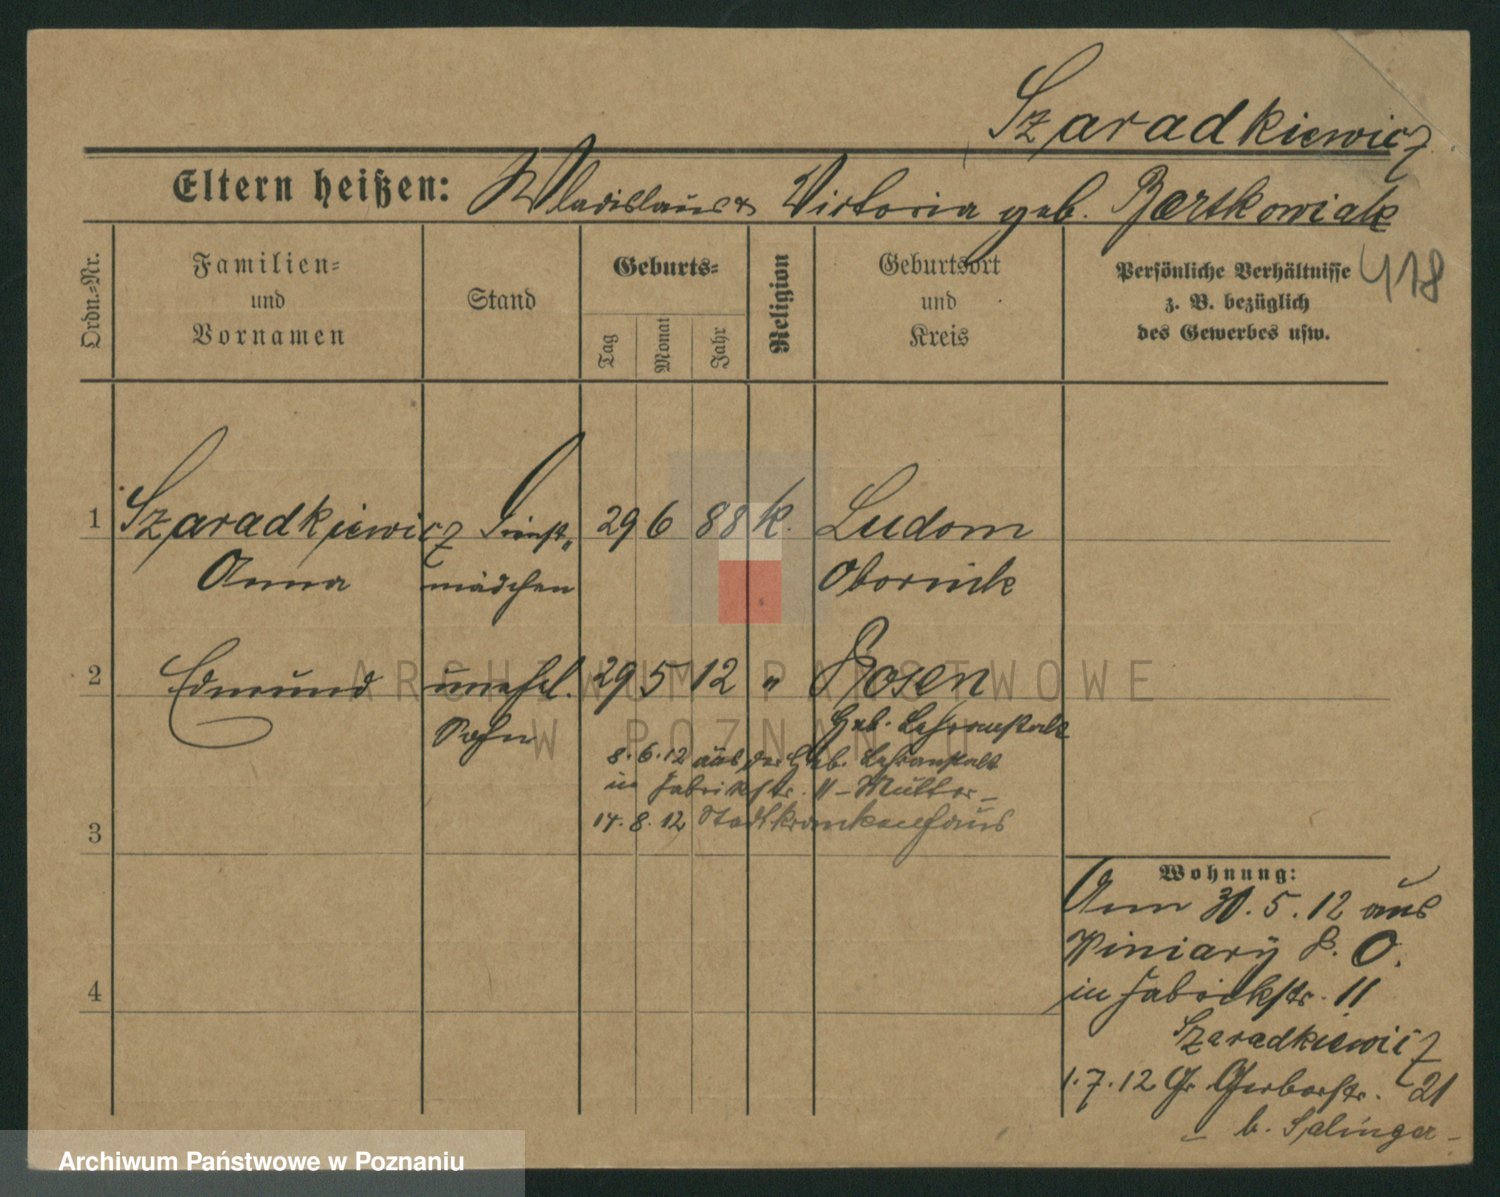 Szaradkiewicz
Eltern heißen: Wladislaus & Victoria geb. Bartkowiak
418
Ordn.=Nr.
Familien=
und
Vornamen
Stand
Geburts=
Tag
Monat
Jahr
Religion
Geburtsort
und
Kreis
Persönliche Verhältnisse
z. B. bezüglich
des Gewerbes usw.
1 Szaradkiewicz Dienst„ 29 6 88 k. Ludom
Anna mädchen Obornik
2 Edmund unehel. 29 5 12 " Posen
Sohn Geb. Lehranstalt
8.6.12 aus der Geb. Lehranstalt
in Fabrikstr. 11 - Mutter -
3 14.8.12 Stadtkrankenhaus
4
Wohnung:
Am 31.5.12 aus
Winiary P. O.
in Fabrikstr. 11
Szaradkiewicz
1.7.12 Gr Gerberstr. 21
- b. Salinger -
ARCHIWUM PAŃSTWOWE
W POZNANIU
Archiwum Państwowe w Poznaniu